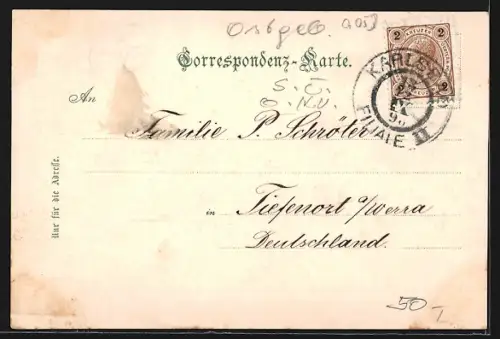 Ostgeb.
Correspondenz-Karte.
2 2
KARLSB
FILIALE
An
Familie P. Schröter
in Tiefenort a/Werra
Deutschland.
Nur für die Adresse.
50